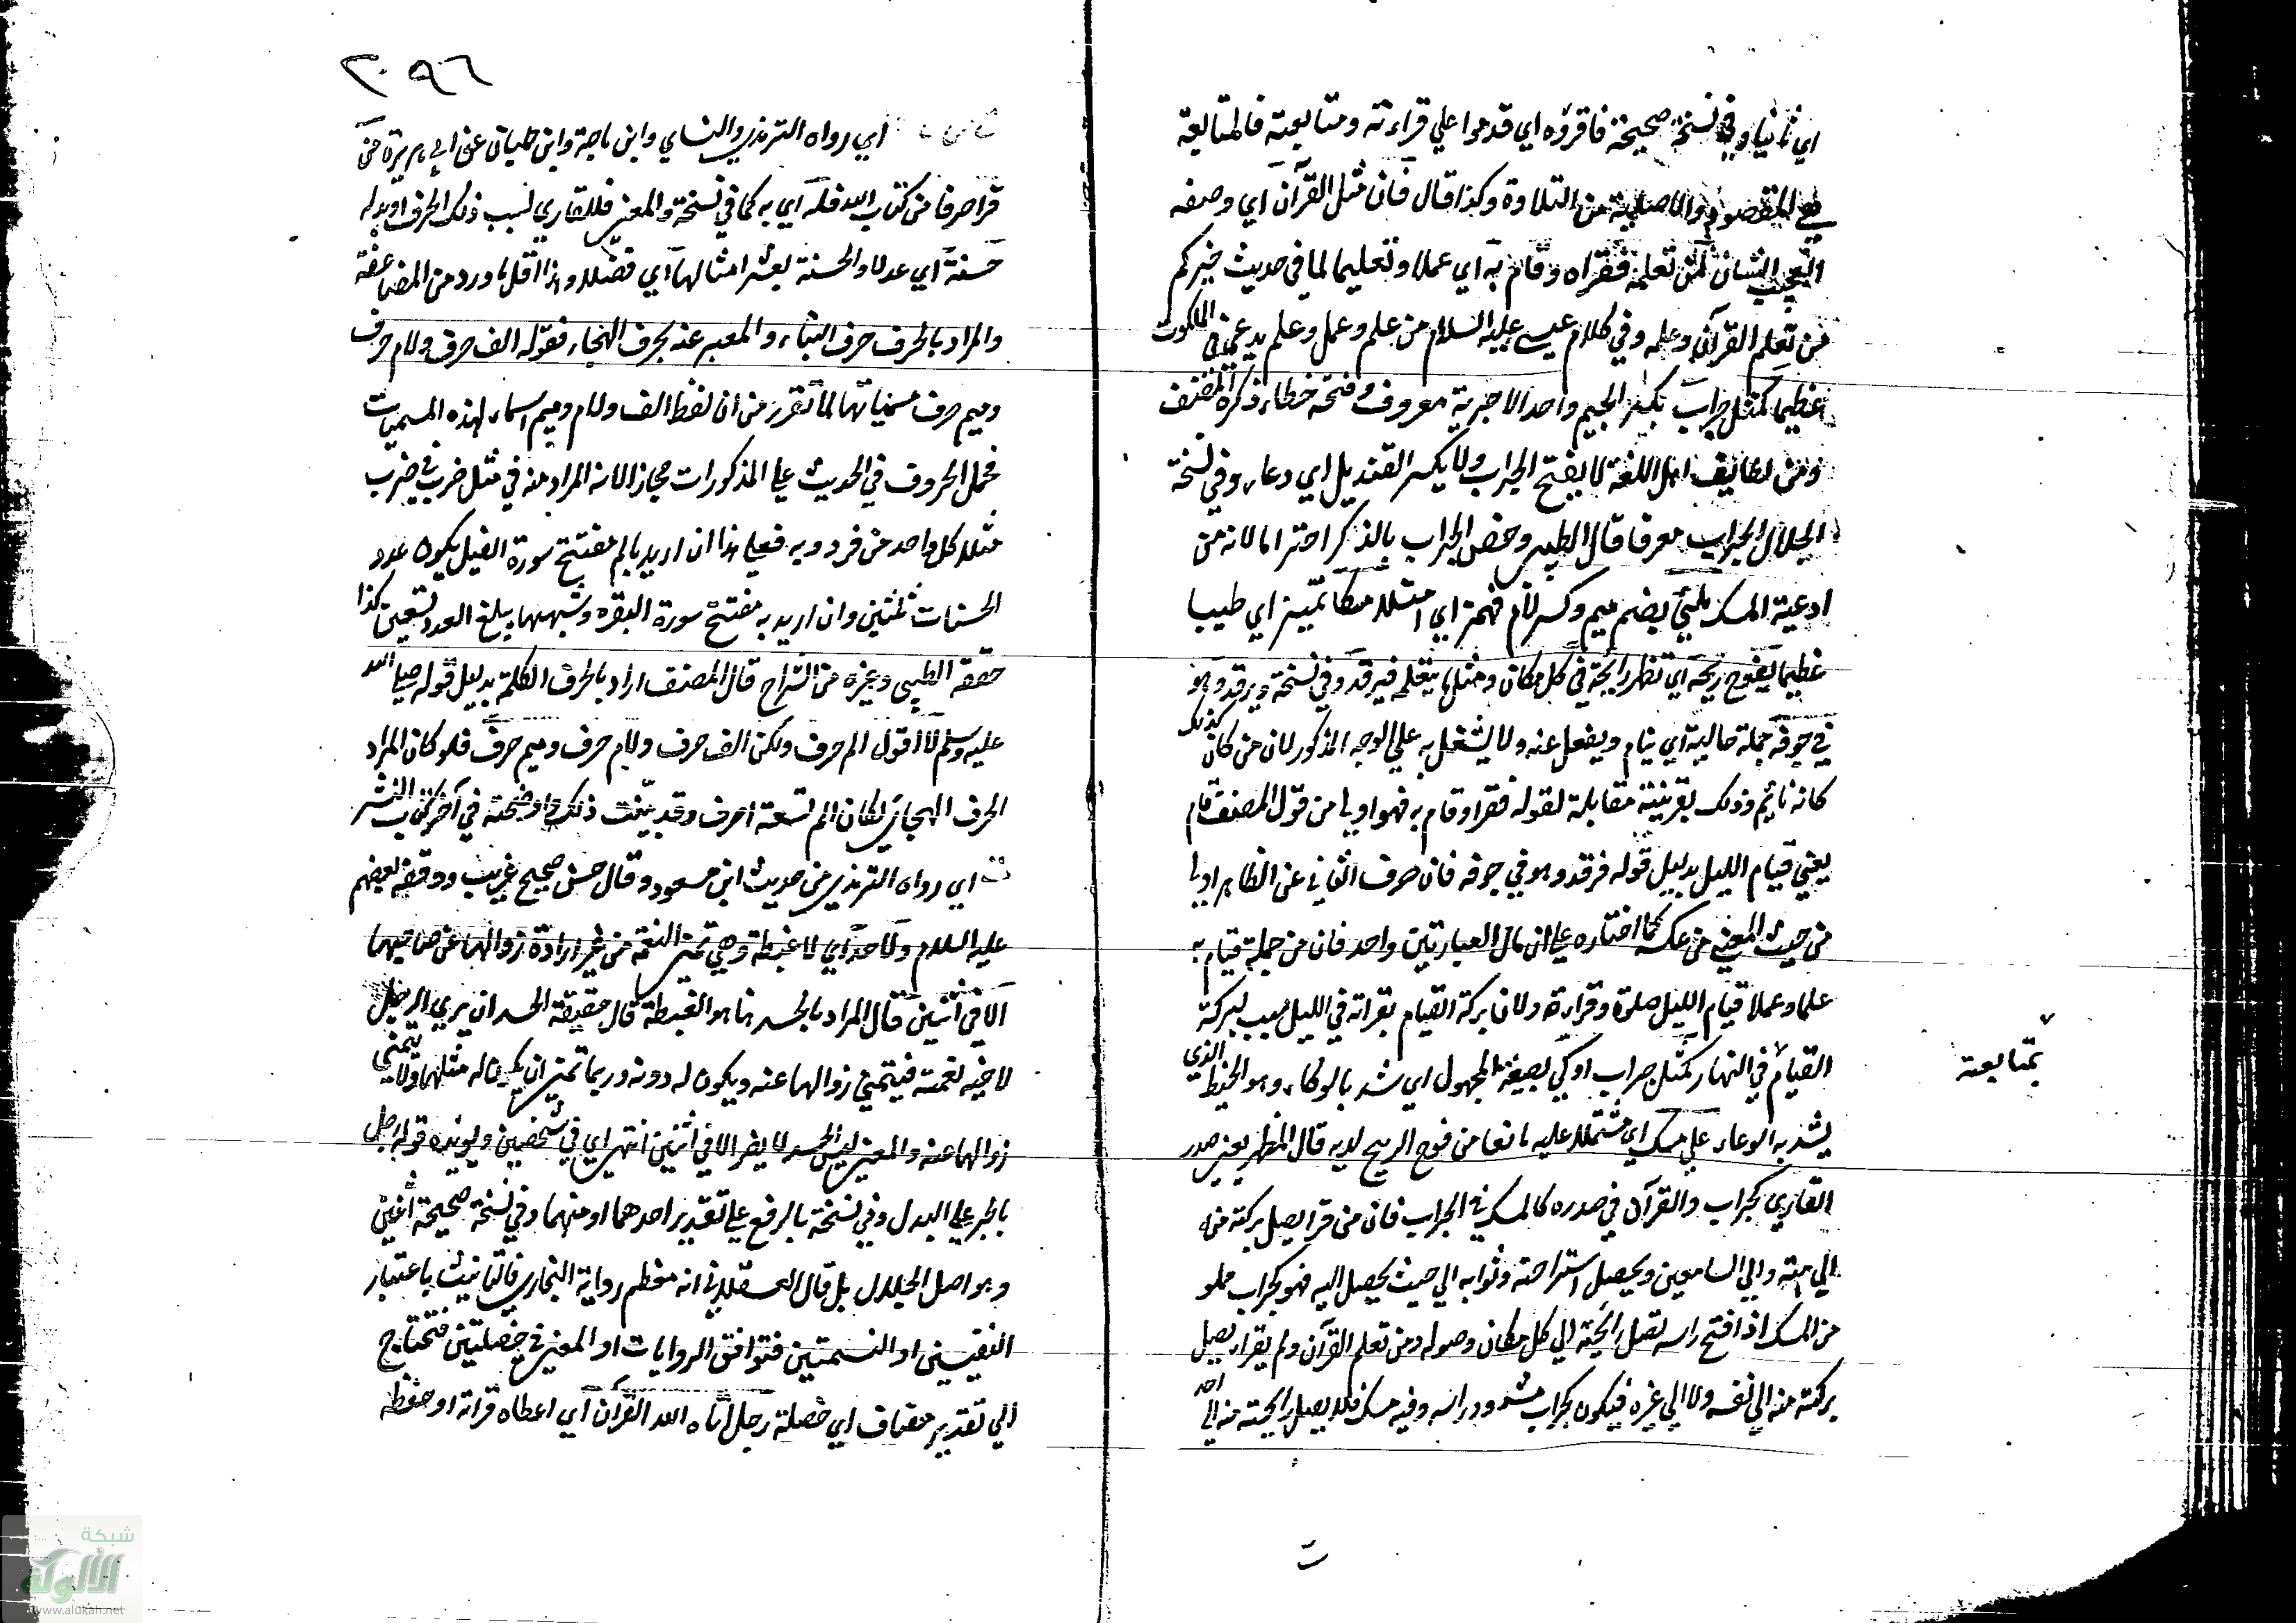 اي ثانيا وفي نسخة صحيحة فاقرؤه اي قدموا علي قراءته ومتابعته فالمتابعة
هي المقصود والاصلية من التلاوة وكذا قال فان مثل القرآن اي وصفه
العجيب الشان لمن تعلمه فقراه وقام به اي عملا وتعليما لما في حديث خيركم
من تعلم القرآن وعلمه وفي كلام عيسي عليه السلام من علم وعمل وعلم يدعي في الملكوت
عظيما كمثل جراب بكسر الجيم واحد الاجربة معروف وفتحه خطاء ذكره المصنف
ومن لطايف اهل اللغة لا يفتح الجراب ولا يكسر القنديل اي وعاء وفي نسخة
الجلال الجراب معرفا قال الطيبي وخص الجراب بالذكر احتراما لانه من
اوعية المسك ملئ بضم ميم وكسر لام فهمز اي امتلا مسكا تمييز اي طيبا
عظيما يفوح ريحه اي تظهر رايحته في كل مكان ومثل من يتعلمه فيرقد وفي نسخة ويرقد وهو
في جوفه جملة حالية اي ينام ويغفل عنه ولا يشتغل به علي الوجه المذكور لان من كان كذلك
كانه نائم وذلك بقرينة مقابلة لقوله فقرا وقام به فهو اولي من قول المصنف قام
يعني قيام الليل بدليل قوله فرقد وهو في جوفه فان صرف الثاني عن الظاهر اولي
من حيث المعني من عكسه كما اختاره علي ان مال العبارتين واحد فان من جملة قيام به
علما وعملا قيام الليل صلوة وقراءة ولان بركة القيام بقراته في الليل سبب لبركة
القيام في النهار كمثل جراب اوكي بصيغة المجهول اي شد بالوكاء وهو الخيط الذي
يشد به الوعاء علي مسك اي مشتملا عليه مانعا من فوح الريح لديه قال المظهر يعني صدر
القاري كجراب والقرآن في صدره كالمسك في الجراب فان من قرا يصل بركته منه
الي بيته والي السامعين ويحصل استراحته وثوابه الي حيث يحصل اليه فهو كجراب مملو
من المسك اذا فتح راسه تصل رائحته الي كل مكان وصوله ومن تعلم القرآن ولم يقرا لم يصل
بركته منه الي نفسه ولا الي غيره فيكون كجراب مشدود راسه وفيه مسك فلا يصل رايحته منه الي احد
بمتابعته
ت
٢٠٩٦
اي رواه الترمذي والنساي وابن ماجة وابن حبان عن ابي هريرة من
قرا حرفا من كتاب الله فله اي به كما في نسخة والمعني فللقاري بسبب ذلك الحرف او بدله
حسنة اي عدلا والحسنة بعشر امثالها اي فضلا وهذا اقل ما ورد من المضاعفة
والمراد بالحرف حرف البناء والمعبر عنه بحرف الهجاء فقوله الف حرف ولام حرف
وميم حرف مسمياتها لما تقرر من ان لفظ الف ولام وميم اسماء لهذه المسميات
فحمل الحروف في الحديث علي المذكورات مجازا لانه المراد منه في مثل ضرب في ضرب
مثلا كل واحد من ض ر و ب فعلي هذا ان اريد بالم مفتتح سورة الفيل يكون عدد
الحسنات ثلثين وان اريد به مفتتح سورة البقرة وشبهها يبلغ العدد تسعين كذا
حققه الطيبي وغيره من الشراح قال المصنف اراد بالحرف الكلمة بدليل قوله صلي الله
عليه وسلم لا اقول الم حرف ولكن الف حرف ولام حرف وميم حرف فلو كان المراد
الحرف الهجائي لكان الم تسعة احرف وقد بينت ذلك واوضحته في آخر كتاب النشر
ت اي رواه الترمذي من حديث ابن مسعود وقال حسن صحيح غريب ووقفه بعضهم
عليه السلام ولا حسد اي لا غبطة وهي تمني النعمة من غير ارادة زوالها عن صاحبها
الا في اثنين قال المراد بالحسد هنا هو الغبطة قال حقيقة الحسد ان يري الرجل
لاخيه نعمة فيتمني زوالها عنه ويكون له دونه وربما تمني ان يكون له مثلها ولا يتمني
زوالها عنه والمعني ليس الحسد لا يضر الا في اثنين انتهي اي في شخصين ويؤيده قوله رجل
بالجر علي البدل وفي نسخة بالرفع علي تقدير احدهما او منهما وفي نسخة صحيحة اثنتين
وهو اصل الجلال بل قال العسقلاني انه معظم رواية البخاري فالتانيث باعتبار
النفسين او النسمتين فتوافق الروايات او المعني في خصلتين فتحتاج
الي تقدير مضاف اي خصلة رجل آتاه الله القرآن اي اعطاه قراته او حفظه
شبكة
الألوكة
www.alukah.net